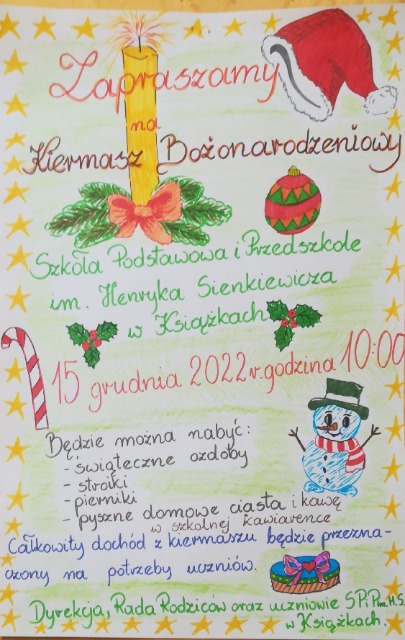 Zapraszamy
na
Kiermasz Bożonarodzeniowy
Szkoła Podstawowa i Przedszkole
im. Henryka Sienkiewicza
w Książkach
15 grudnia 2022 r. godzina 10:00
Będzie można nabyć:
- świąteczne ozdoby
- stroiki
- pierniki
- pyszne domowe ciasta i kawę
w szkolnej kawiarence
Całkowity dochód z kiermaszu będzie przezna-
czony na potrzeby uczniów.
Dyrekcja, Rada Rodziców oraz uczniowie SP i P im. H.S.
w Książkach.